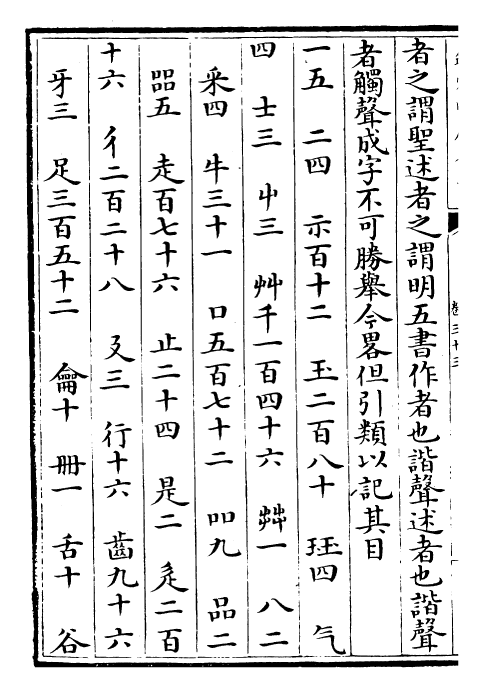 者之謂聖述者之謂明五書作者也諧聲述者也諧聲
者觸聲成字不可勝舉今畧但引類以記其目
一五 二四 示百十二 玉二百八十 玨四 气
四 士三 屮三 艸千一百四十六 茻一 八二
釆四 牛三十一 口五百七十二 吅九 品二
㗊五 走百七十六 止二十四 是二 辵二百
十六 彳二百二十八 廴三 行十六 齒九十六
牙三 足三百五十二 龠十 冊一 舌十 谷
卷三十三